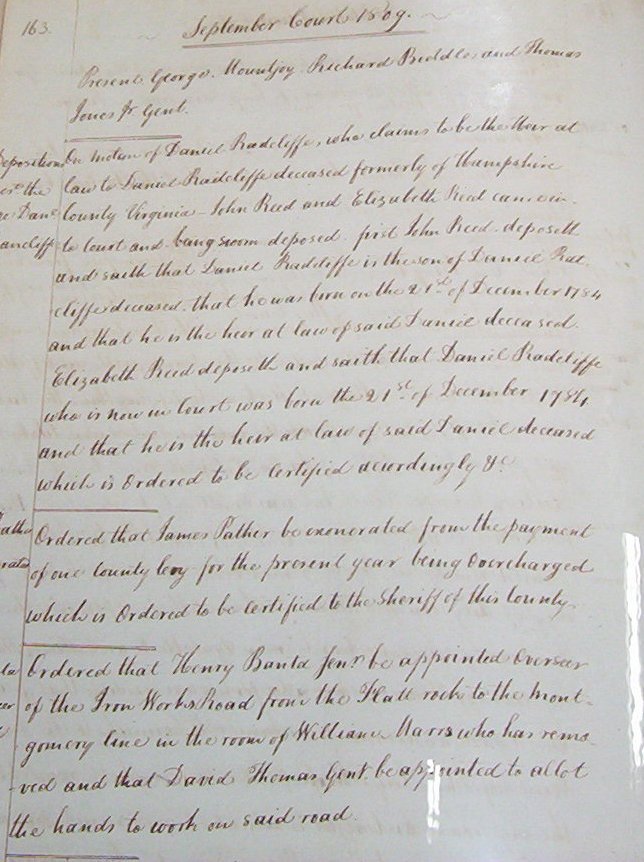 163.
September Court 1809.
Present George Mountjoy Richard Biddle and Thomas
Jones Jr Gent.
Deposition On motion of Daniel Radcliffe, who claims to be the Heir at
the law to Daniel Radcliffe deceased formerly of Hampshire
Dan County Virginia - John Reed and Elizabeth Reed came in-
ancliffe to Court and being sworn deposed. first John Reed deposeth
and saith that Daniel Radcliffe is the son of Daniel Rad
cliffe deceased, that he was born on the 21st of December 1784
and that he is the heir at law of said Daniel deceased.
Elizabeth Reed deposeth and saith that Daniel Radcliffe
who is now in Court was born the 21st of December 1784
and that he is the heir at law of said Daniel deceased
which is Ordered to be Certified accordingly &c
Ordered that James Pather be exonerated from the payment
of one County levy for the present year being Overcharged
which is Ordered to be Certified to the Sheriff of this County.
Ordered that Henry Banta Senr. be appointed Overseer
of the Iron Works Road from the Flatt rock to the Mont-
gomery line in the room of William Marrs who has remo-
-ved and that David Thomas Gent. be appointed to allot
the hands to work on said road.